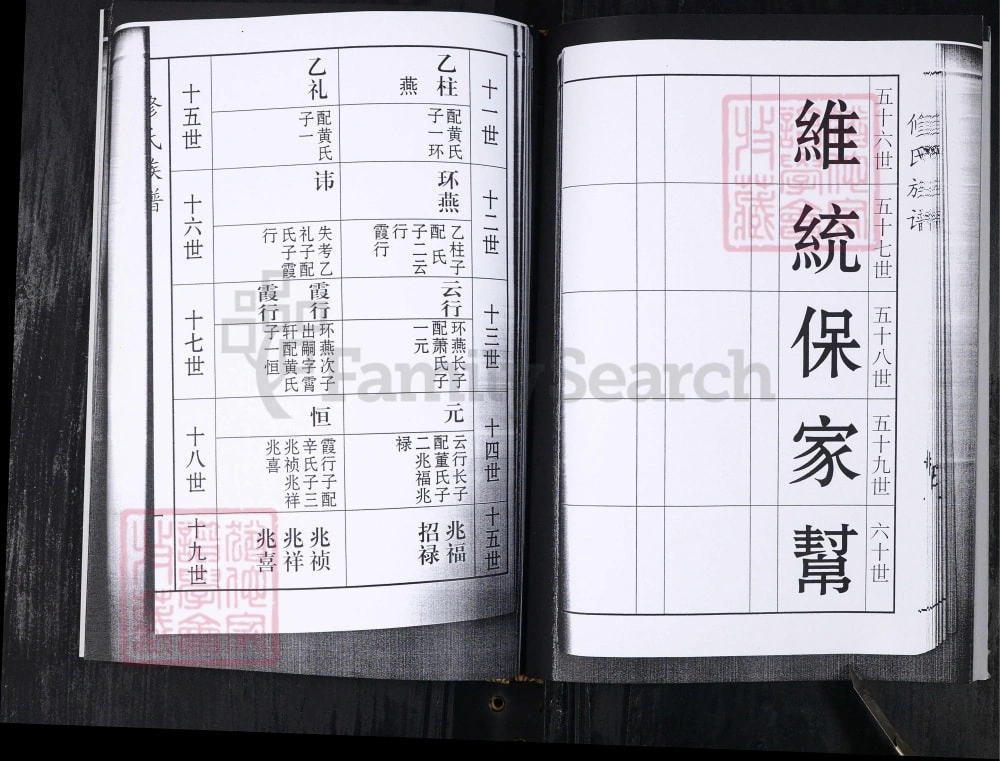 修氏族谱
五十六世
維
五十七世
統
五十八世
保
五十九世
家
六十世
幫
十一世
十二世
十三世
十四世
十五世
乙柱
燕
配黄氏
子一环
环燕
乙柱子
配 氏
子二云
行
霞行
云行
环燕长子
配萧氏子
一元
元
云行长子
配董氏子
二兆福兆
禄
兆福
招禄
乙礼
配黄氏
子一
讳
失考乙
礼子配
氏子霞
行
霞行
霞行
环燕次子
出嗣字霄
轩配黄氏
子一恒
恒
霞行子配
辛氏子三
兆祯兆祥
兆喜
兆祯
兆祥
兆喜
十五世
十六世
十七世
十八世
十九世
修氏族谱
FamilySearch